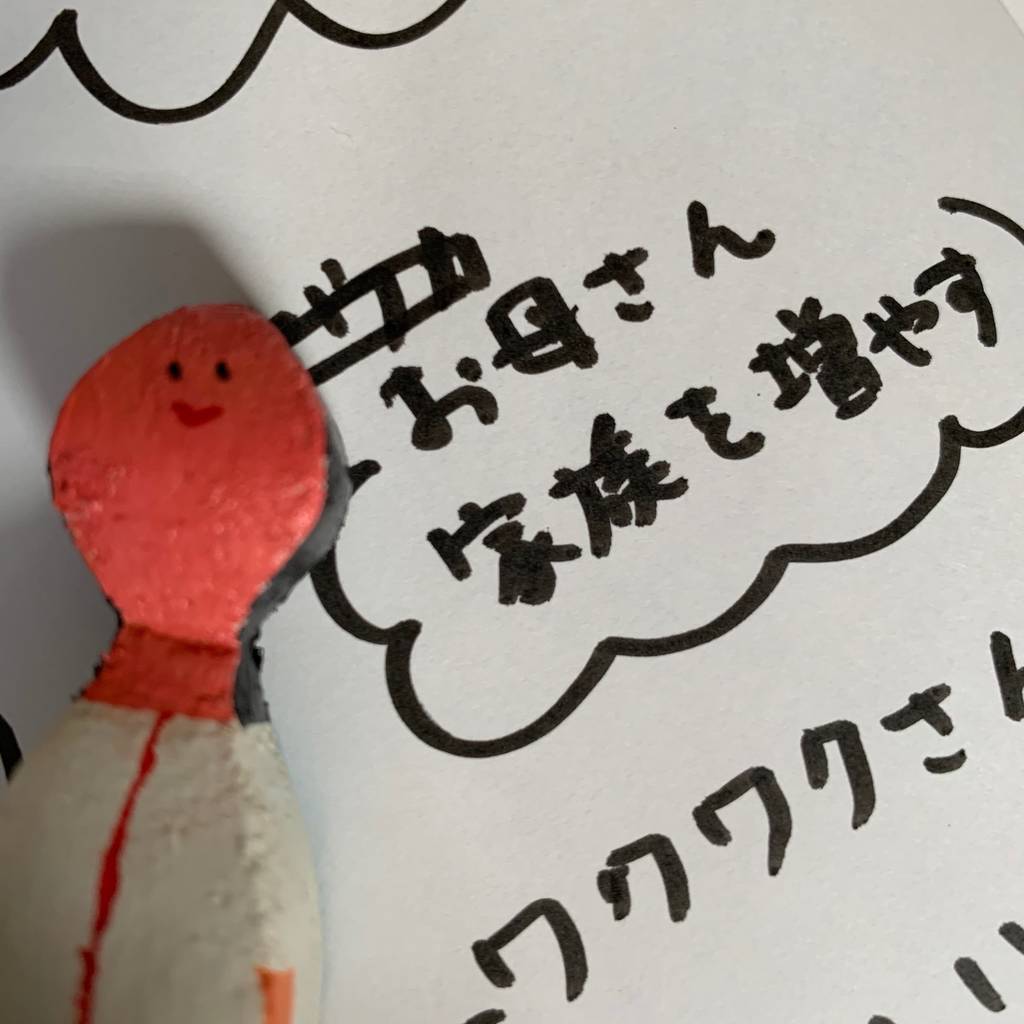 お母さん
家族を増やす
ワクワクさん